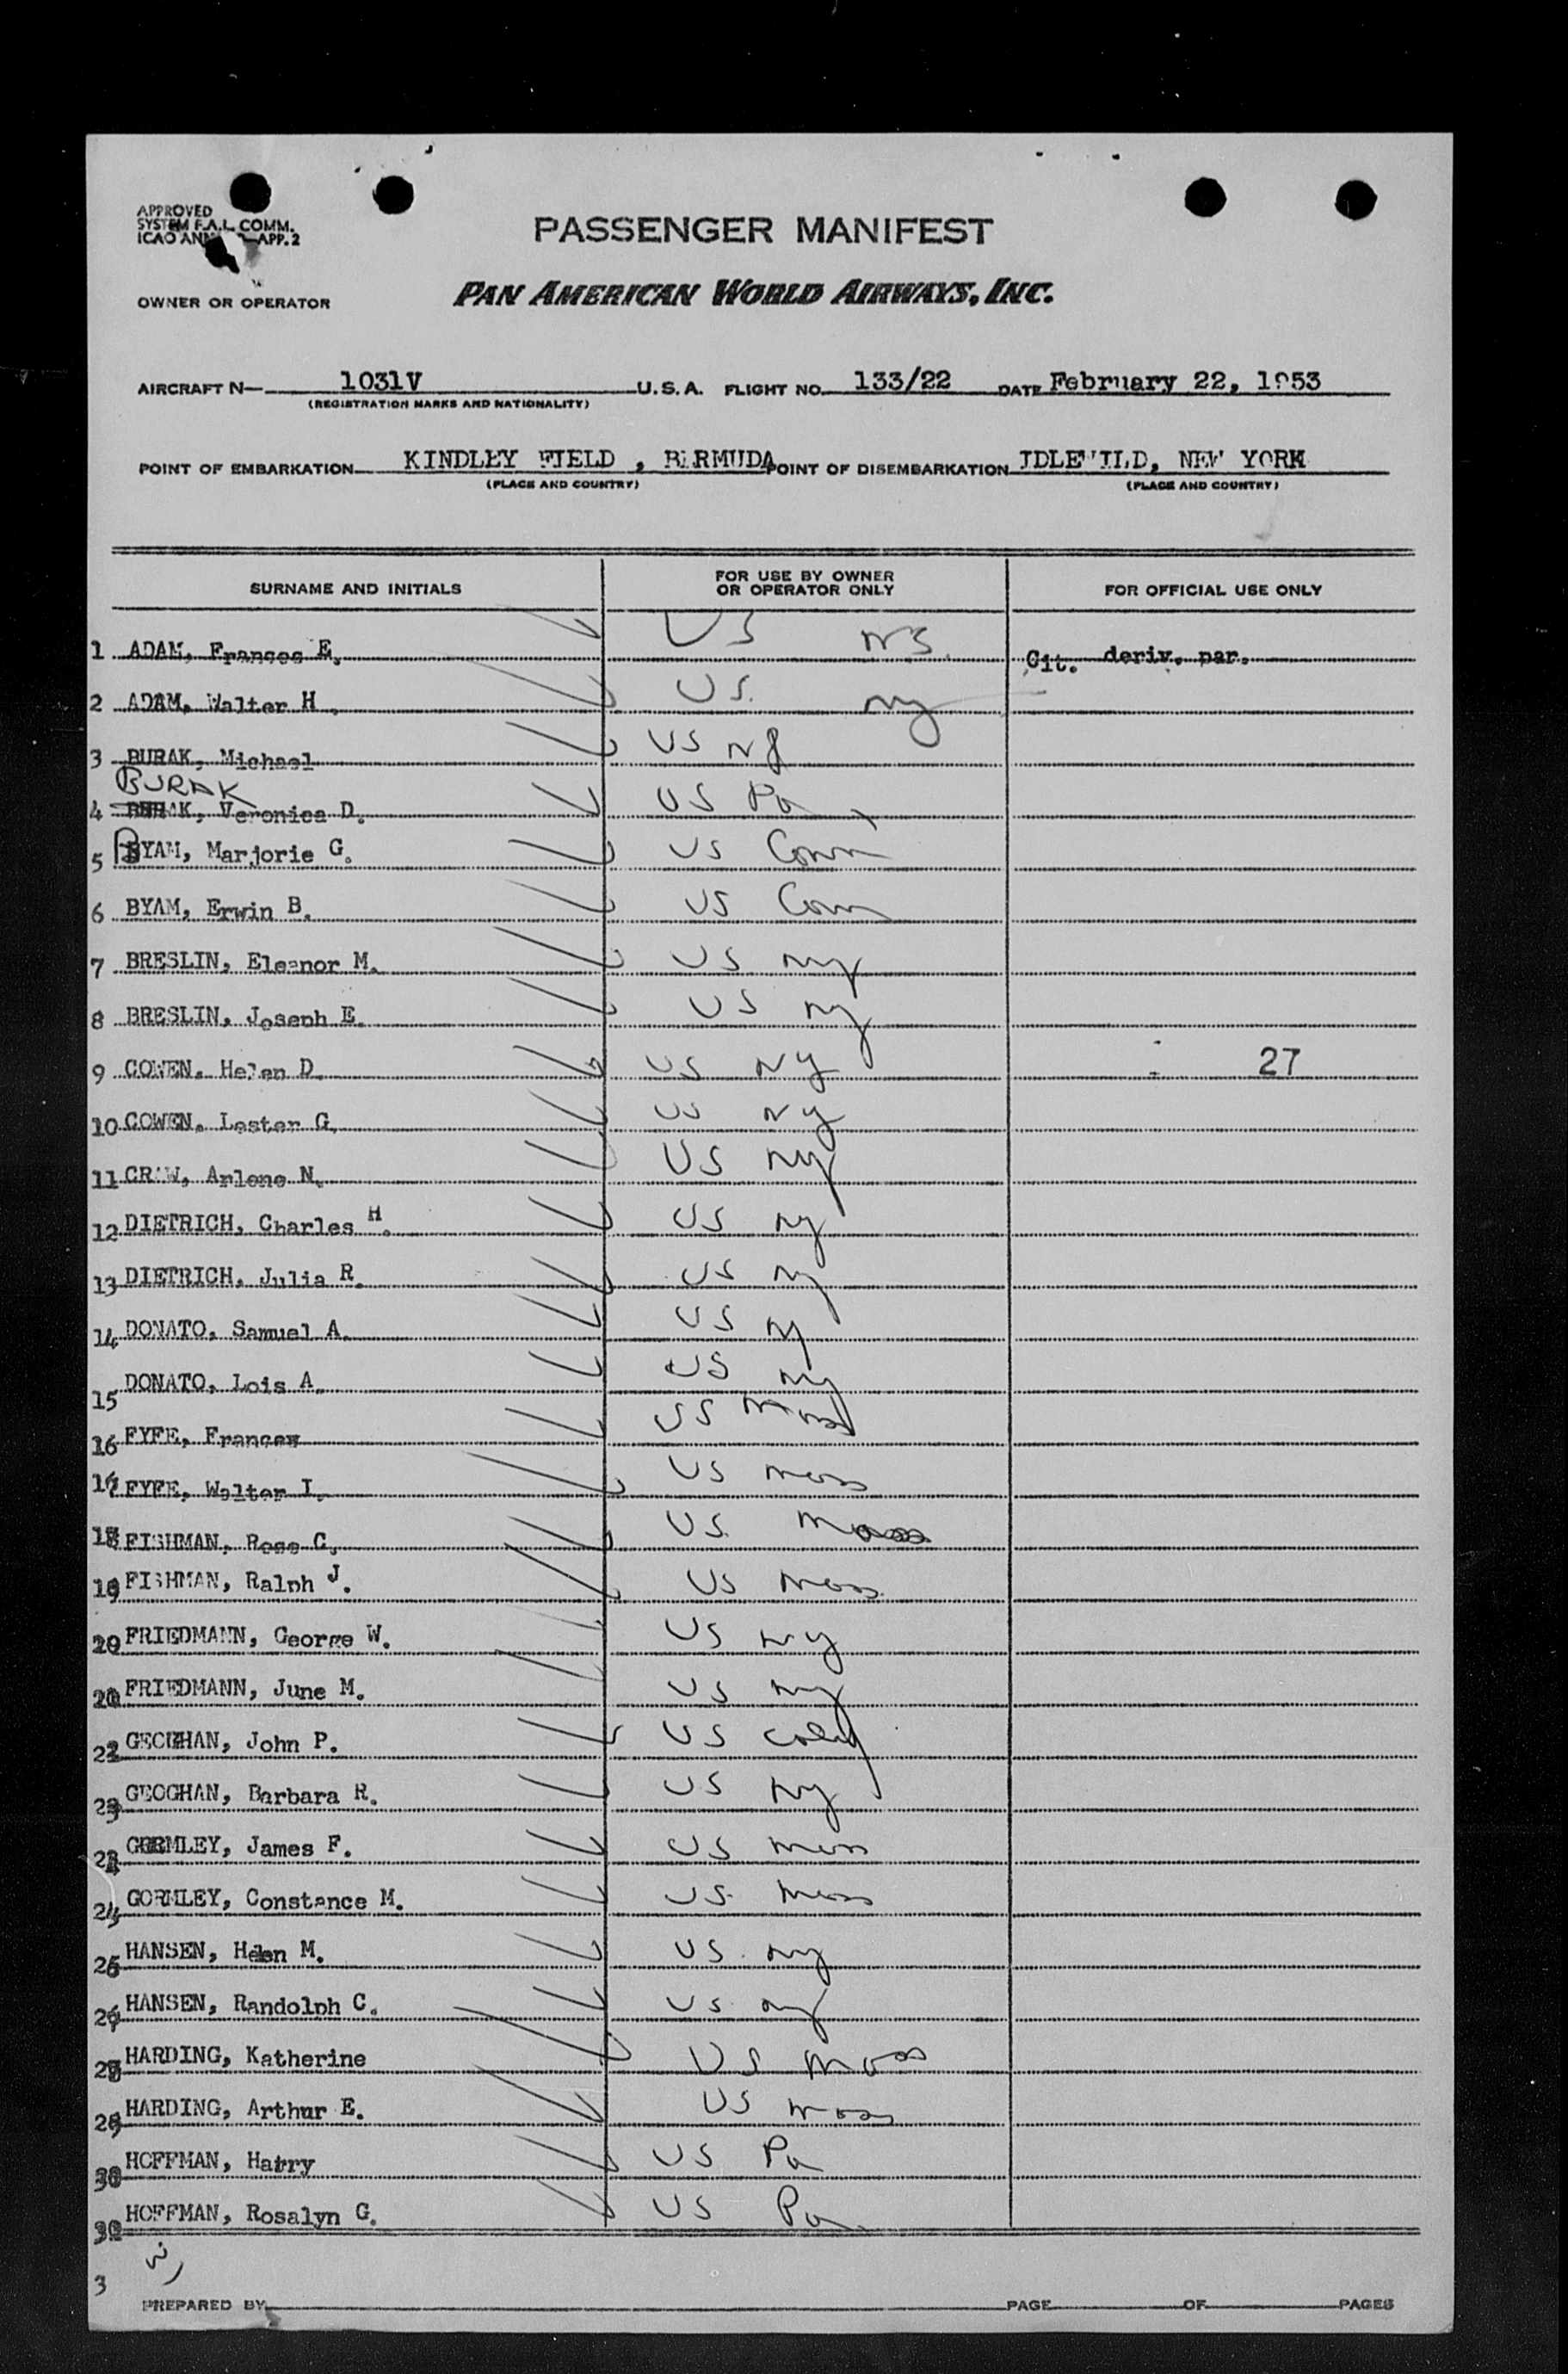 APPROVED
SYSTEM F.A.L. COMM.
ICAO APP. 2
PASSENGER MANIFEST
OWNER OR OPERATOR PAN AMERICAN WORLD AIRWAYS, INC.
AIRCRAFT N— 1031V U.S.A. FLIGHT NO. 133/22 DATE February 22, 1953
(REGISTRATION MARKS AND NATIONALITY)
POINT OF EMBARKATION KINDLEY FIELD , BERMUDA POINT OF DISEMBARKATION IDLEWILD, NEW YORK
(PLACE AND COUNTRY) (PLACE AND COUNTRY)
SURNAME AND INITIALS FOR USE BY OWNER OR OPERATOR ONLY FOR OFFICIAL USE ONLY
1 ADAM, Frances E. US Cit. deriv. par.
2 ADAM, Walter H. US. Ny
3 BURAK, Michael US
BURAK
4 Veronica D. US Pa
5 BYAM, Marjorie G. US Conn
6 BYAM, Erwin B. US Conn
7 BRESLIN, Eleanor M. US Ny
8 BRESLIN, Joseph E. US Ny
9 COWEN, Helen D. US NY 27
10 COWEN, Lester G. US NY
11 CRAW, Arlene N. US Ny
12 DIETRICH, Charles H. US Ny
13 DIETRICH, Julia R. US Ny
14 DONATO, Samuel A. US Ny
15 DONATO, Lois A. US Ny
16 FYFE, Frances US Mass
17 FYFE, Walter I. US Mass
18 FISHMAN, Rose C. US Mass
19 FISHMAN, Ralph J. US Mass
20 FRIEDMANN, George W. US NY
21 FRIEDMANN, June M. US Ny
22 GEOGHAN, John P. US
23 GEOGHAN, Barbara R. US Ny
24 GORMLEY, James F. US Mass
25 GORMLEY, Constance M. US Mass
26 HANSEN, Helen M. US Ny
27 HANSEN, Randolph C. US Ny
28 HARDING, Katherine US Mass
29 HARDING, Arthur E. US Mass
30 HOFFMAN, Harry US Pa
HOFFMAN, Rosalyn G. US Pa
3
PREPARED BY PAGE OF PAGES